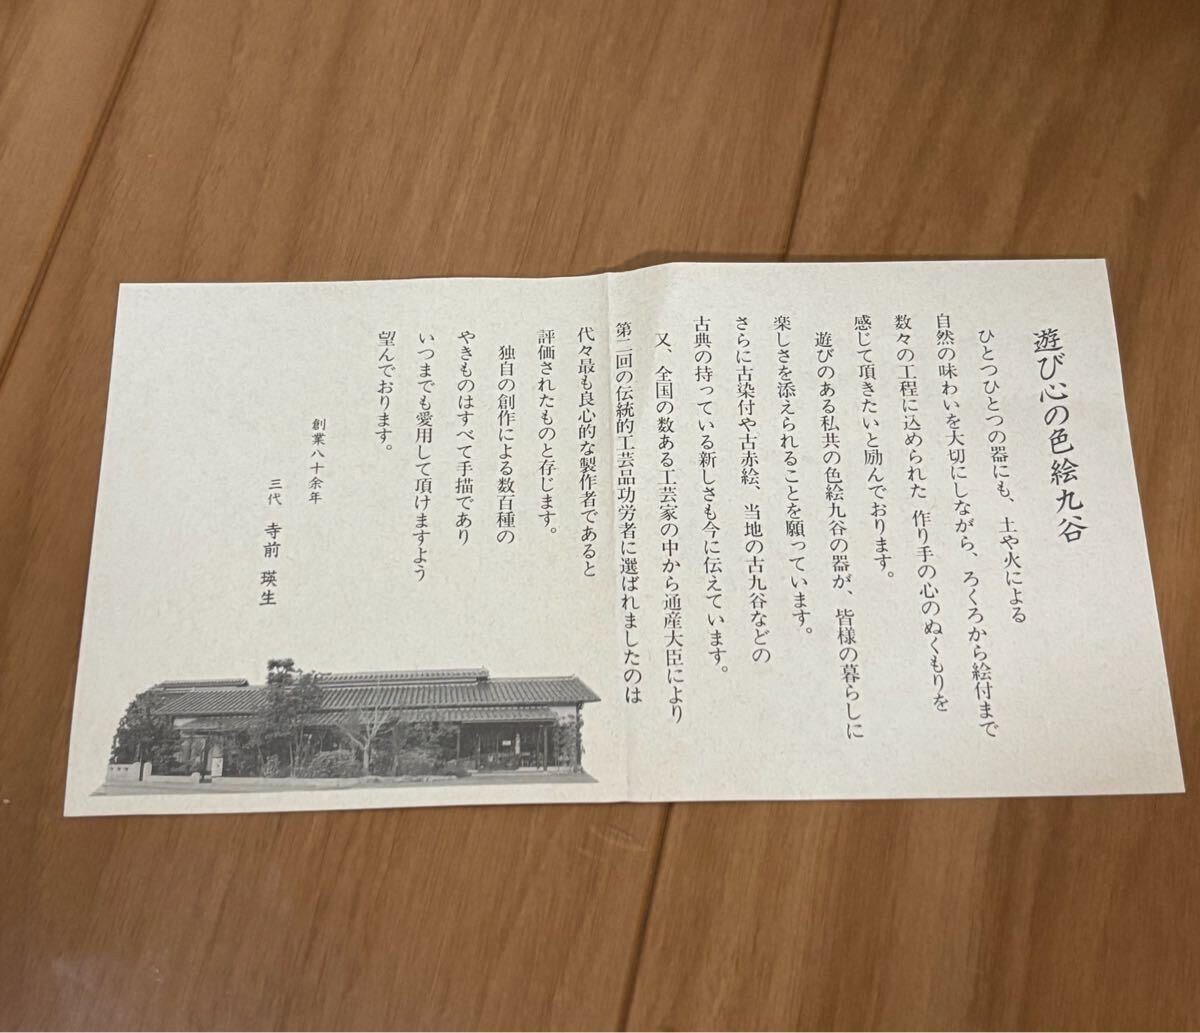 遊び心の色絵九谷
ひとつひとつの器にも、土や火による
自然の味わいを大切にしながら、ろくろから絵付まで
数々の工程に込められた 作り手の心のぬくもりを
感じて頂きたいと励んでおります。
遊びのある私共の色絵九谷の器が、皆様の暮らしに
楽しさを添えられることを願っています。
さらに古染付や古赤絵、当地の古九谷などの
古典の持っている新しさも今に伝えています。
又、全国の数ある工芸家の中から通産大臣により
第二回の伝統的工芸品功労者に選ばれましたのは
代々最も良心的な製作者であると
評価されたものと存じます。
独自の創作による数百種の
やきものはすべて手描であり
いつまでも愛用して頂けますよう
望んでおります。
創業八十余年
三代 寺前 瑛生